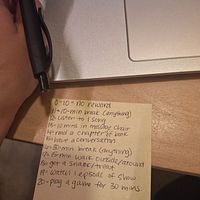 0-10 = no reward
11 = 10-min break (anything)
12 = listen to 1 song
13 = 10 mins in massage chair
14 = read a chapter of book
15 = have a conversation
min break (anything)
15 min walk outside/around
get a snack/treat
19 = watch 1 episode of show
20 = play a game for 30 mins